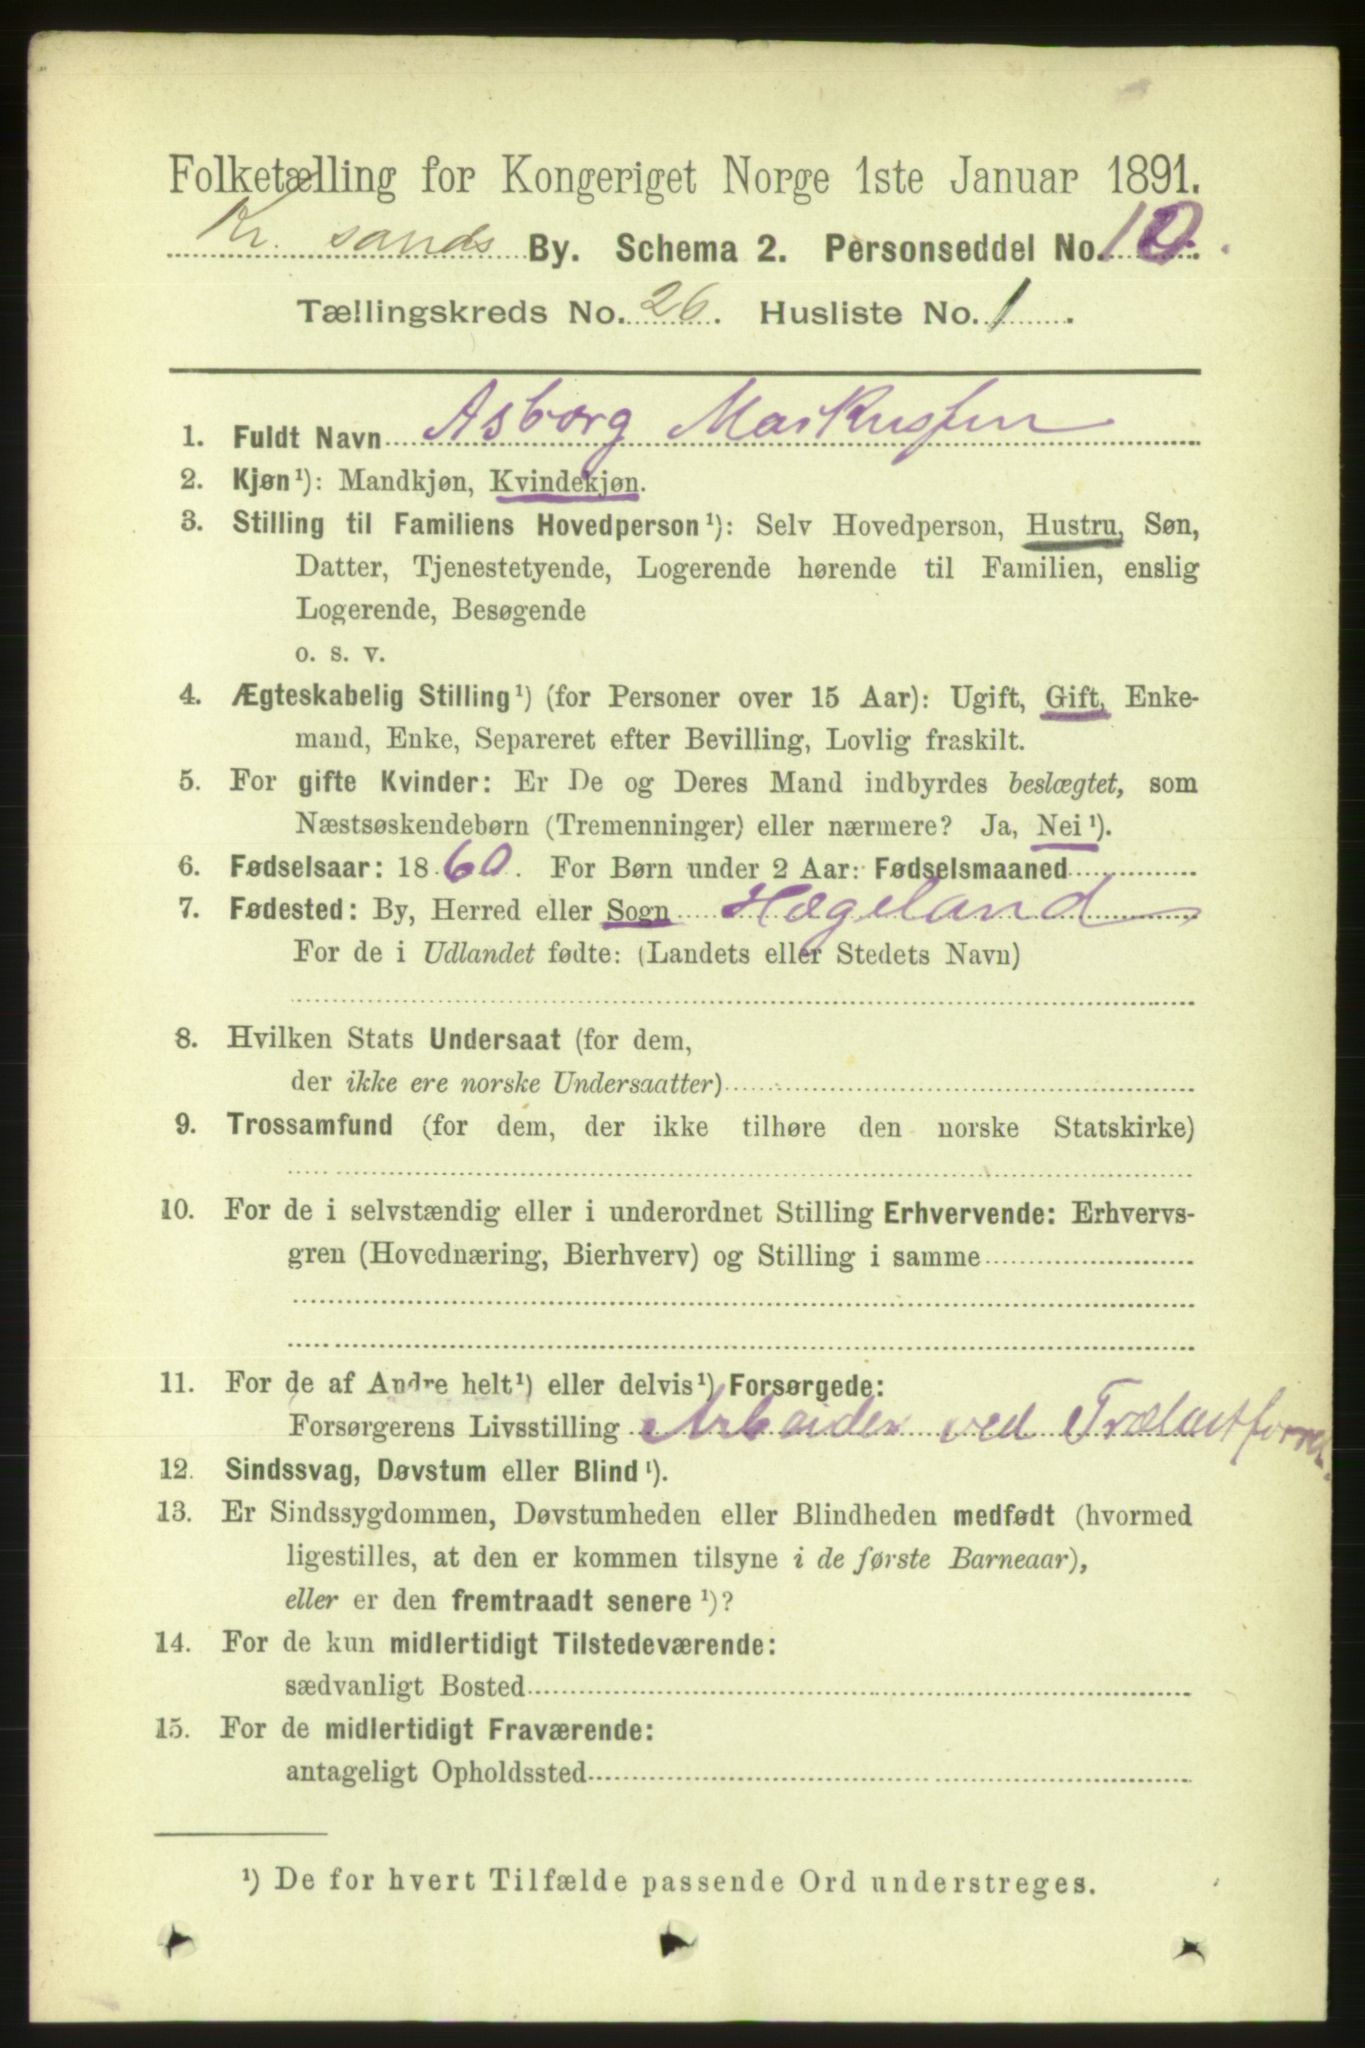 Folketælling for Kongeriget Norge 1ste Januar 1891.
Kr. sands By. Schema 2. Personseddel No. 10.
Tællingskreds No. 26. Husliste No. 1.
1. Fuldt Navn Asborg Markussen
2. Kjøn¹): Mandkjøn, Kvindekjøn.
3. Stilling til Familiens Hovedperson¹): Selv Hovedperson, Hustru, Søn,
Datter, Tjenestetyende, Logerende hørende til Familien, enslig
Logerende, Besøgende
o. s. v.
4. Ægteskabelig Stilling¹) (for Personer over 15 Aar): Ugift, Gift, Enke-
mand, Enke, Separeret efter Bevilling, Lovlig fraskilt.
5. For gifte Kvinder: Er De og Deres Mand indbyrdes beslægtet, som
Næstsøskendebørn (Tremenninger) eller nærmere? Ja, Nei¹).
6. Fødselsaar: 1860. For Børn under 2 Aar: Fødselsmaaned
7. Fødested: By, Herred eller Sogn Hægeland
For de i Udlandet fødte: (Landets eller Stedets Navn)
8. Hvilken Stats Undersaat (for dem,
der ikke ere norske Undersaatter)
9. Trossamfund (for dem, der ikke tilhøre den norske Statskirke)
10. For de i selvstændig eller i underordnet Stilling Erhvervende: Erhvervs-
gren (Hovednæring, Bierhverv) og Stilling i samme
11. For de af Andre helt¹) eller delvis¹) Forsørgede:
Forsørgerens Livsstilling Arbeider ved Trælastforret.
12. Sindssvag, Døvstum eller Blind¹).
13. Er Sindssygdommen, Døvstumheden eller Blindheden medfødt (hvormed
ligestilles, at den er kommen tilsyne i de første Barneaar),
eller er den fremtraadt senere¹)?
14. For de kun midlertidigt Tilstedeværende:
sædvanligt Bosted
15. For de midlertidigt Fraværende:
antageligt Opholdssted
¹) De for hvert Tilfælde passende Ord understreges.